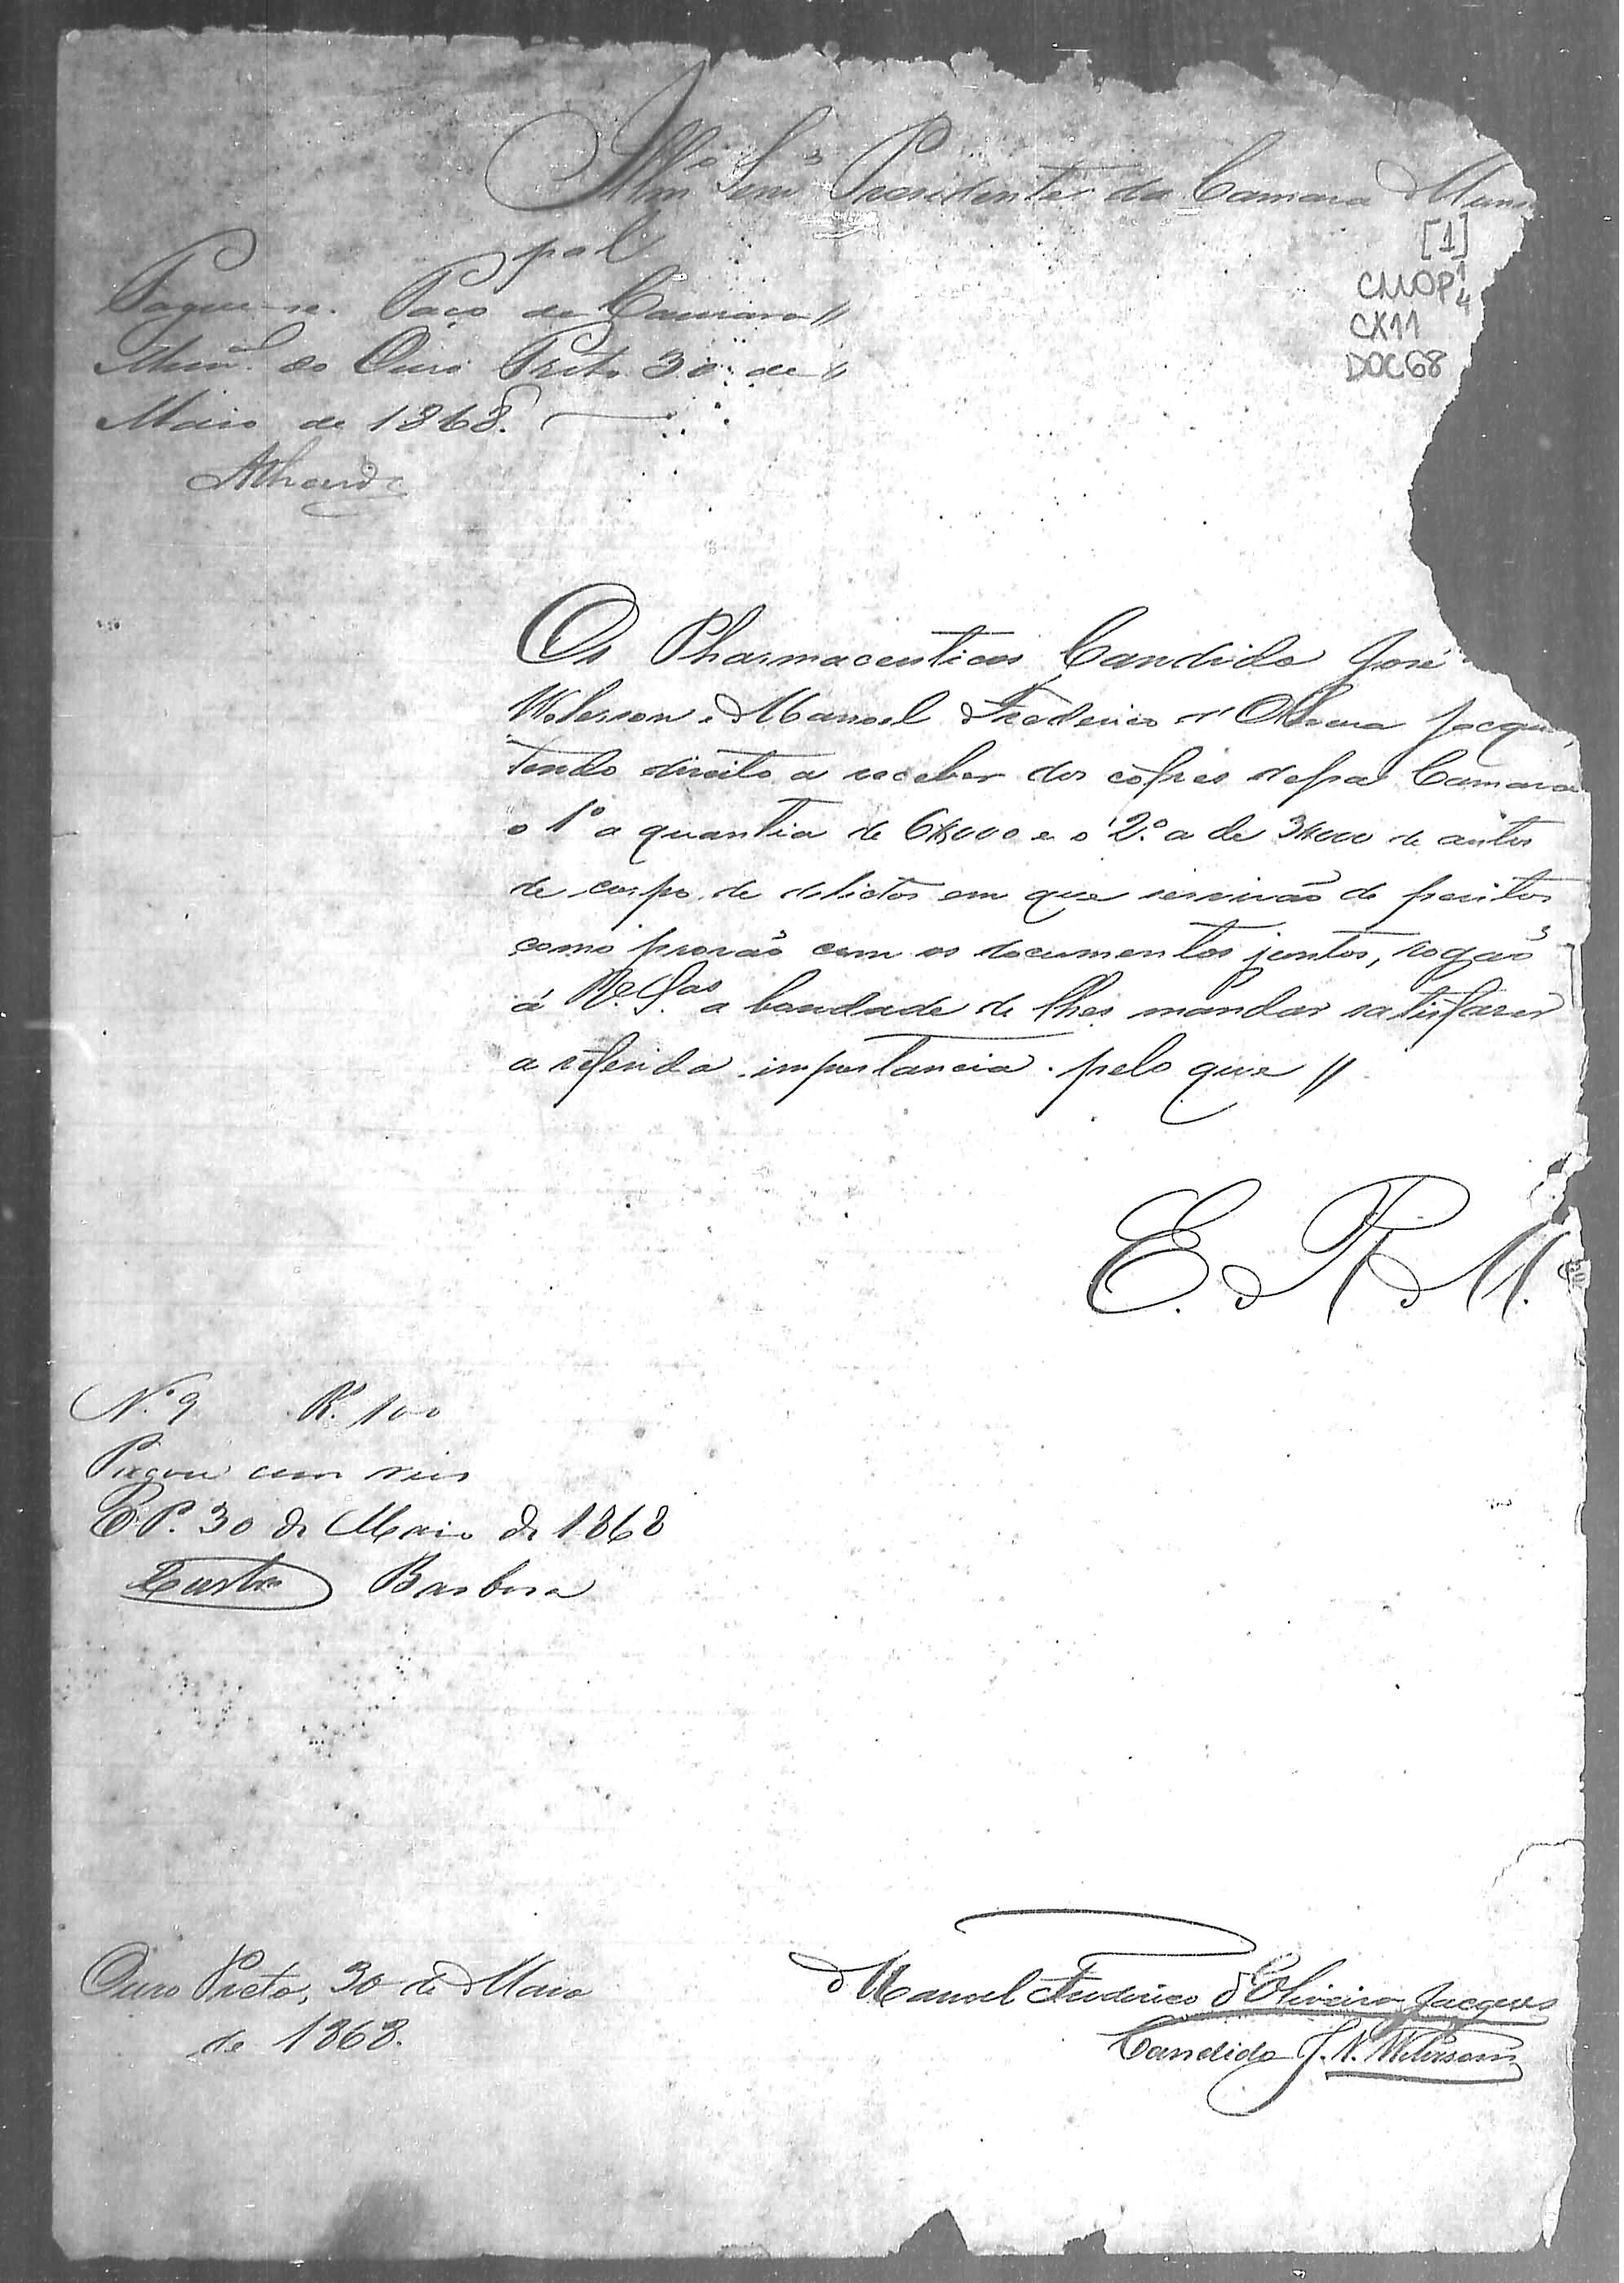 Illm.º Senr.
Presidente da Camara Muni
pal
[1]
CMOP 1/4
CX11
DOC68
Pague-se. Paço da Camara //
Mun.al do Ouro Preto 30 de
Maio de 1868.
Os Pharmaceuticos Candido José
Welerson e Manoel Frederico d'Oliveira Jacqu
tendo direito a receber dos cofres dessa Camara
o 1º a quantia de 6$000 e o 2.º a de 3$000 de autos
de corpo de delictos em que servirão de peritos
como provão com os documentos juntos, rogão
á V.ªS.as a bondade de lhes mandar satisfazer
a referida importancia. pelo que //
E. R. M.
N.º 9 R.s 100
Pagou cem reis
O. P. 30 de Maio de 1868
Castro Barbosa
Ouro Preto, 30 de Maio
de 1868.
Manoel Frederico d'Oliveira Jacques
Candido J. N. Welerson